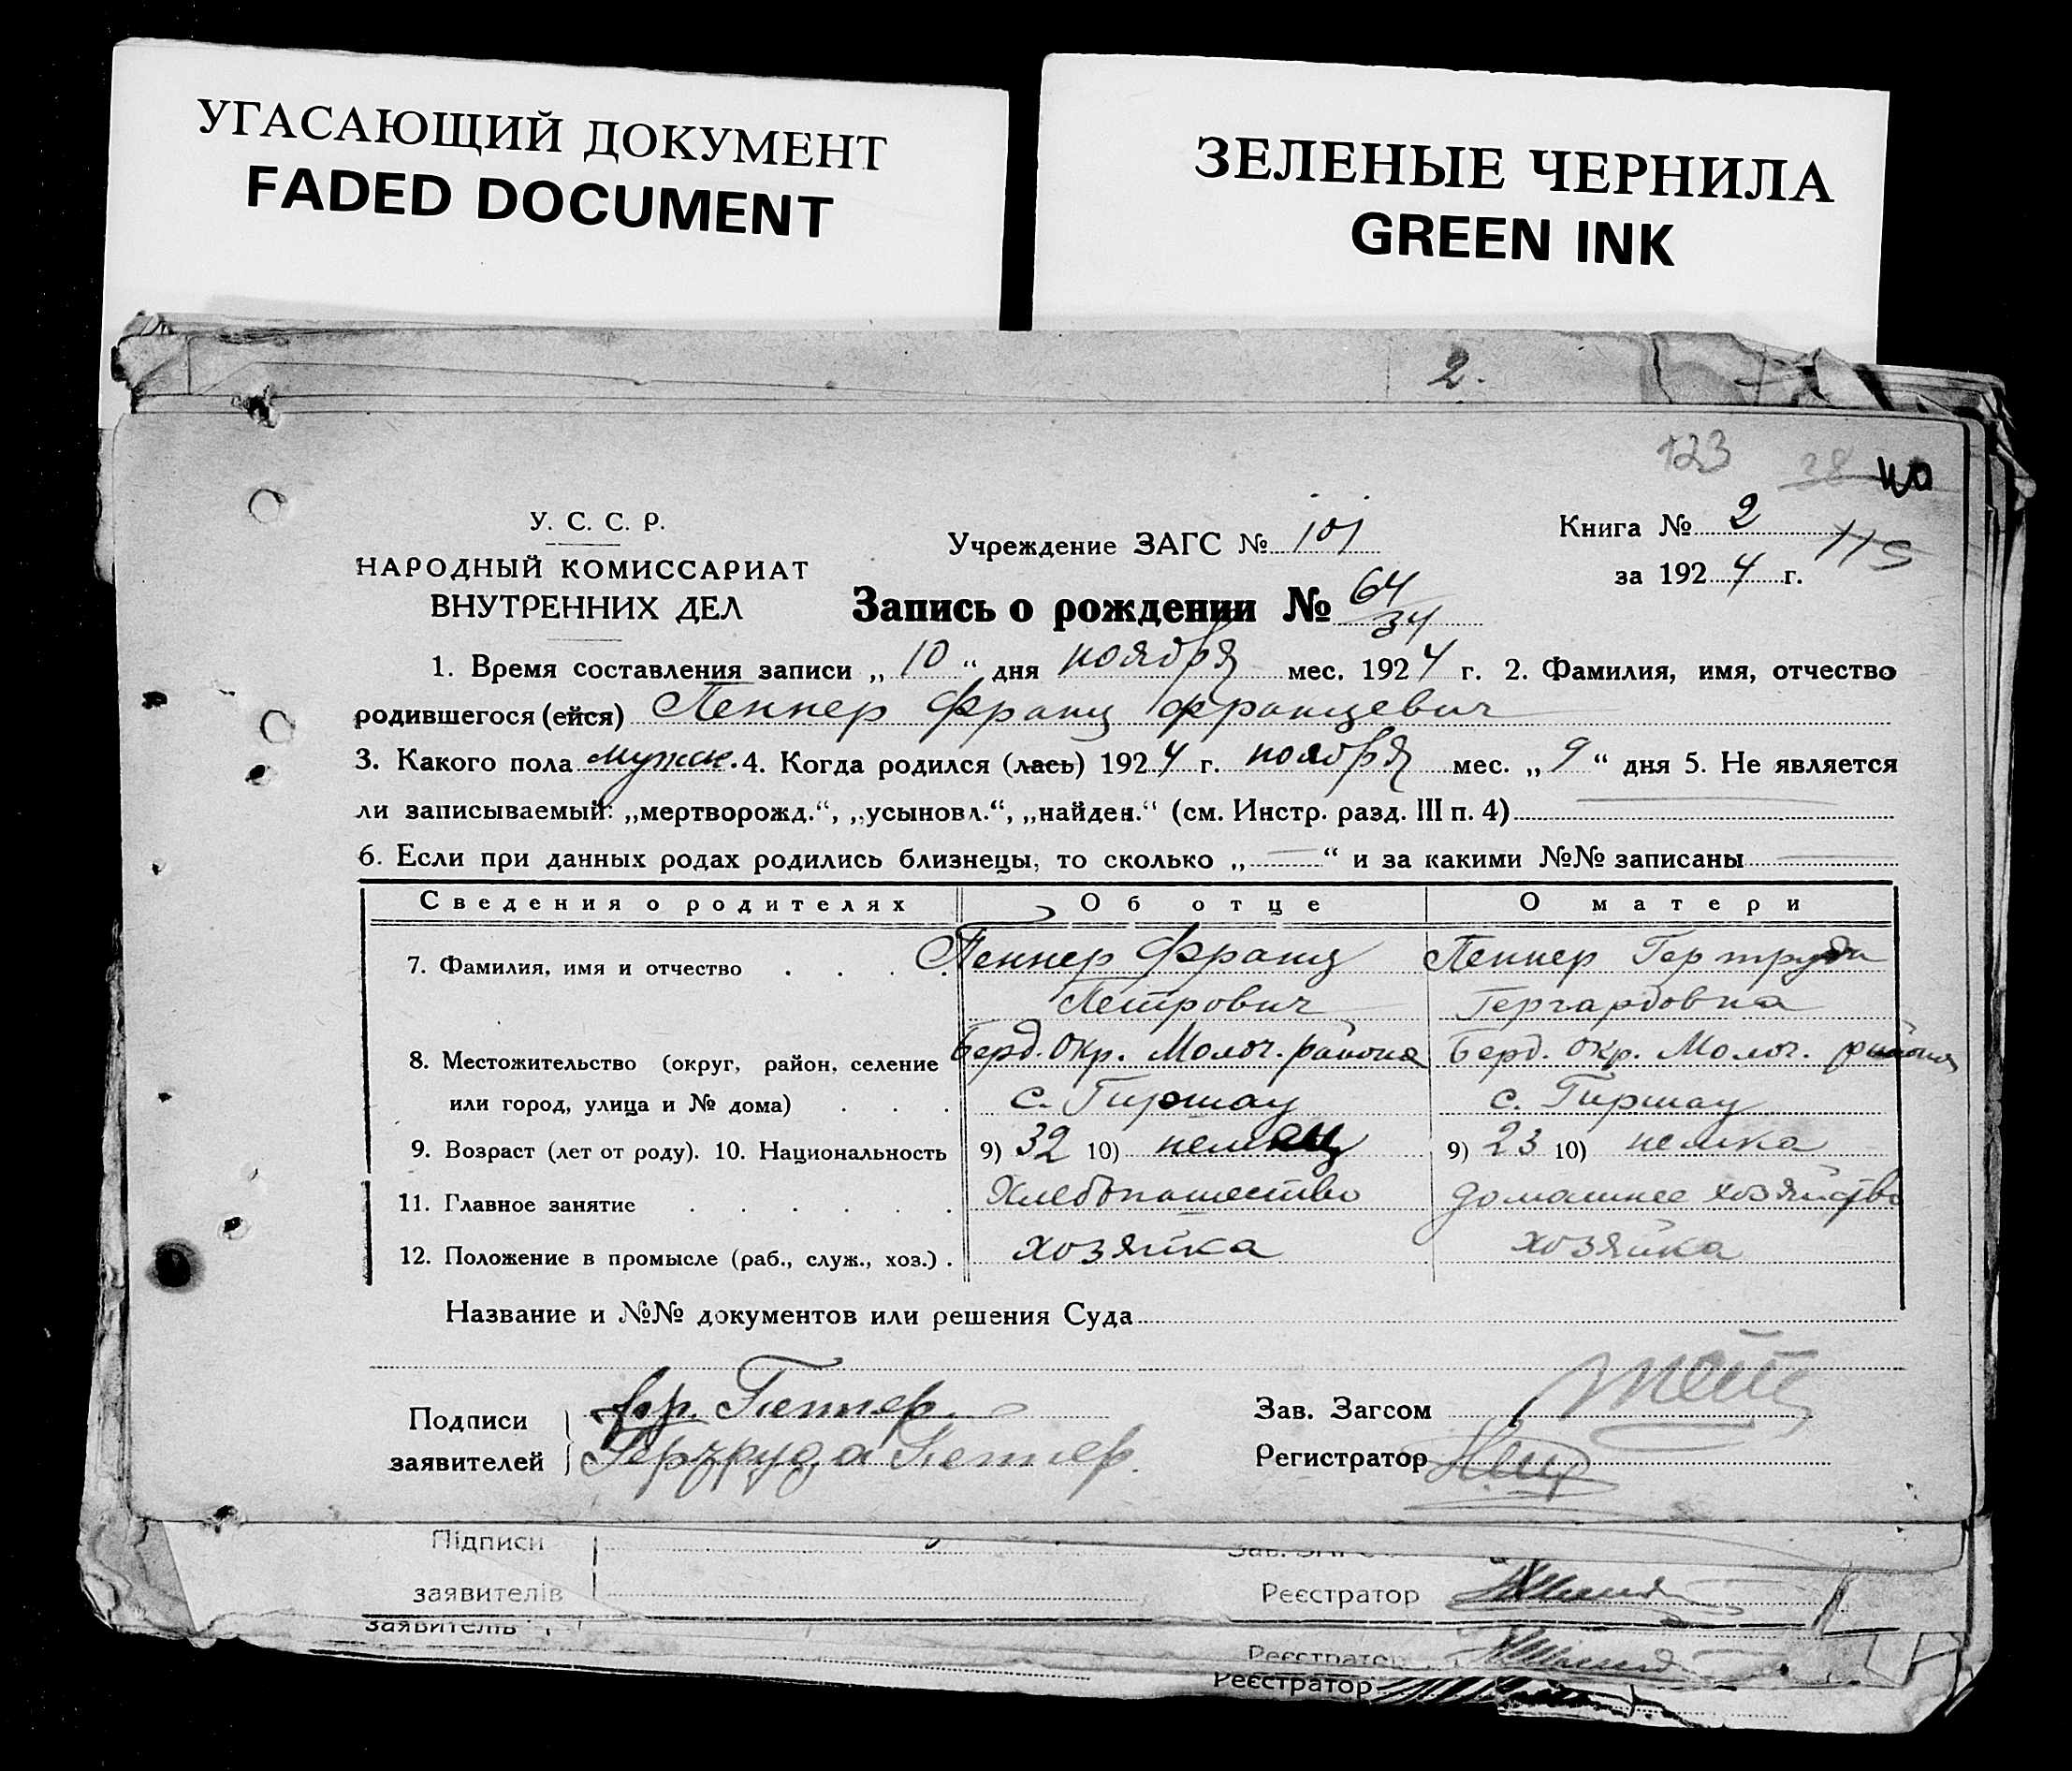 УГАСАЮЩИЙ ДОКУМЕНТ
FADED DOCUMENT
ЗЕЛЕНЫЕ ЧЕРНИЛА
GREEN INK
2.
123 28 40
У. С. С. Р.
НАРОДНЫЙ КОМИССАРИАТ
ВНУТРЕННИХ ДЕЛ
Учреждение ЗАГС № 101
Книга № 2
119
за 1924 г.
Запись о рождении № 64/34
1. Время составления записи „ 10 “ дня ноября мес. 1924 г. 2. Фамилия, имя, отчество
родившегося (ейся) Пеннер Франц Францевич
3. Какого пола мужск. 4. Когда родился (лась) 1924 г. ноября мес. „ 9 “ дня 5. Не является
ли записываемый: „мертворожд.“, „усыновл.“, „найден.“ (см. Инстр. разд. III п. 4)
6. Если при данных родах родились близнецы, то сколько „ — “ и за какими №№ записаны —
Сведения о родителях Об отце О матери
7. Фамилия, имя и отчество . . . . Пеннер Франц Пеннер Гертруда
Петрович Гергардовна
8. Местожительство (округ, район, селение Берд. Окр. Молоч. района Берд. Окр. Молоч. района
или город, улица и № дома) . . . с. Гиршау с. Гиршау
9. Возраст (лет от роду). 10. Национальность 9) 32 10) немец 9) 23 10) немка
11. Главное занятие . . . . . . Хлебопашество домашнее хозяйство
12. Положение в промысле (раб., служ., хоз.) . хозяйка хозяйка
Название и №№ документов или решения Суда
Подписи Фр. Пеннер Зав. Загсом
заявителей Гертруда Пеннер. Регистратор
Підписи
заявителів Реєстратор
заявителів Реєстратор
Реєстратор